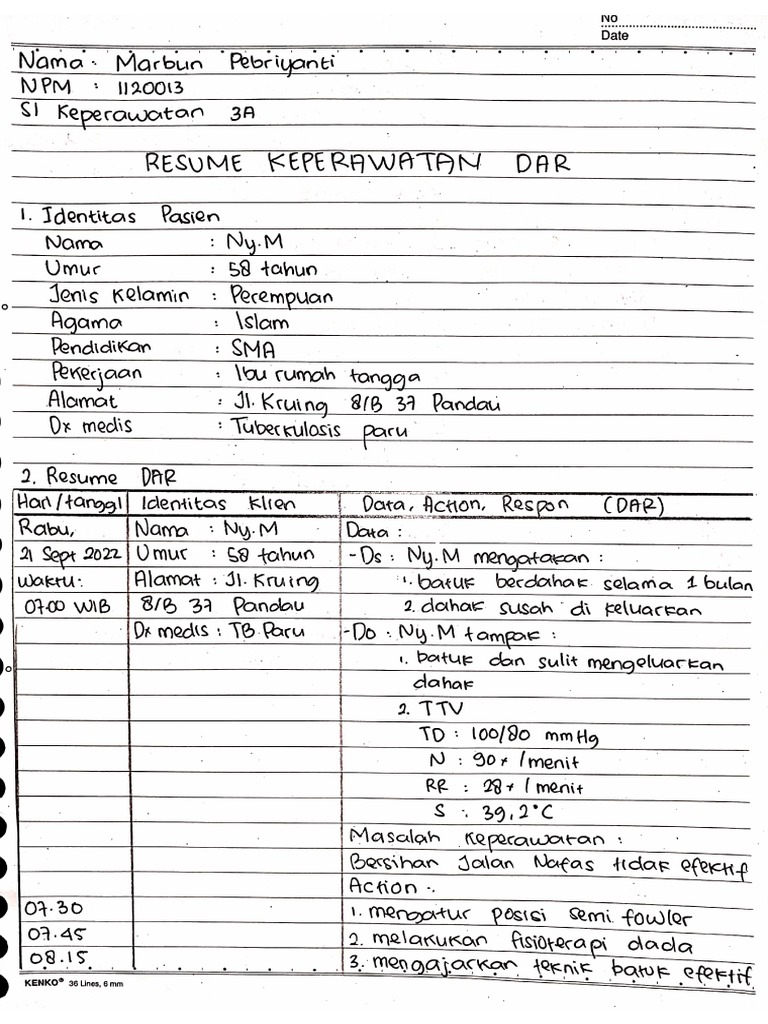 No
Date
Nama : Marbun Pebriyanti
NPM : 1120013
S1 Keperawatan 3A
RESUME KEPERAWATAN DAR
1. Identitas Pasien
Nama : Ny.M
Umur : 58 tahun
Jenis Kelamin : Perempuan
Agama : Islam
Pendidikan : SMA
Pekerjaan : Ibu rumah tangga
Alamat : Jl. Kruing 8/B 37 Pandau
Dx medis : Tuberkulosis paru
2. Resume DAR
Hari/tanggl Identitas Klien Data, Action, Respon (DAR)
Rabu, Nama : Ny.M Data :
21 Sept 2022 Umur : 58 tahun - Ds : Ny.M mengatakan :
Waktu: Alamat : Jl. Kruing 1. batuk berdahak selama 1 bulan
07.00 WIB 8/B 37 Pandau 2. dahak susah di keluarkan
Dx medis : TB Paru - Do : Ny.M tampak :
1. batuk dan sulit mengeluarkan
dahak
2. TTV
TD : 100/80 mmHg
N : 90x /menit
RR : 28x /menit
S : 39,2°C
Masalah Keperawatan :
Bersihan Jalan Nafas tidak efektif
Action :
07.30 1. mengatur posisi semi fowler
07.45 2. melakukan fisioterapi dada
08.15 3. mengajarkan teknik batuk efektif
KENKO® 36 Lines, 6 mm